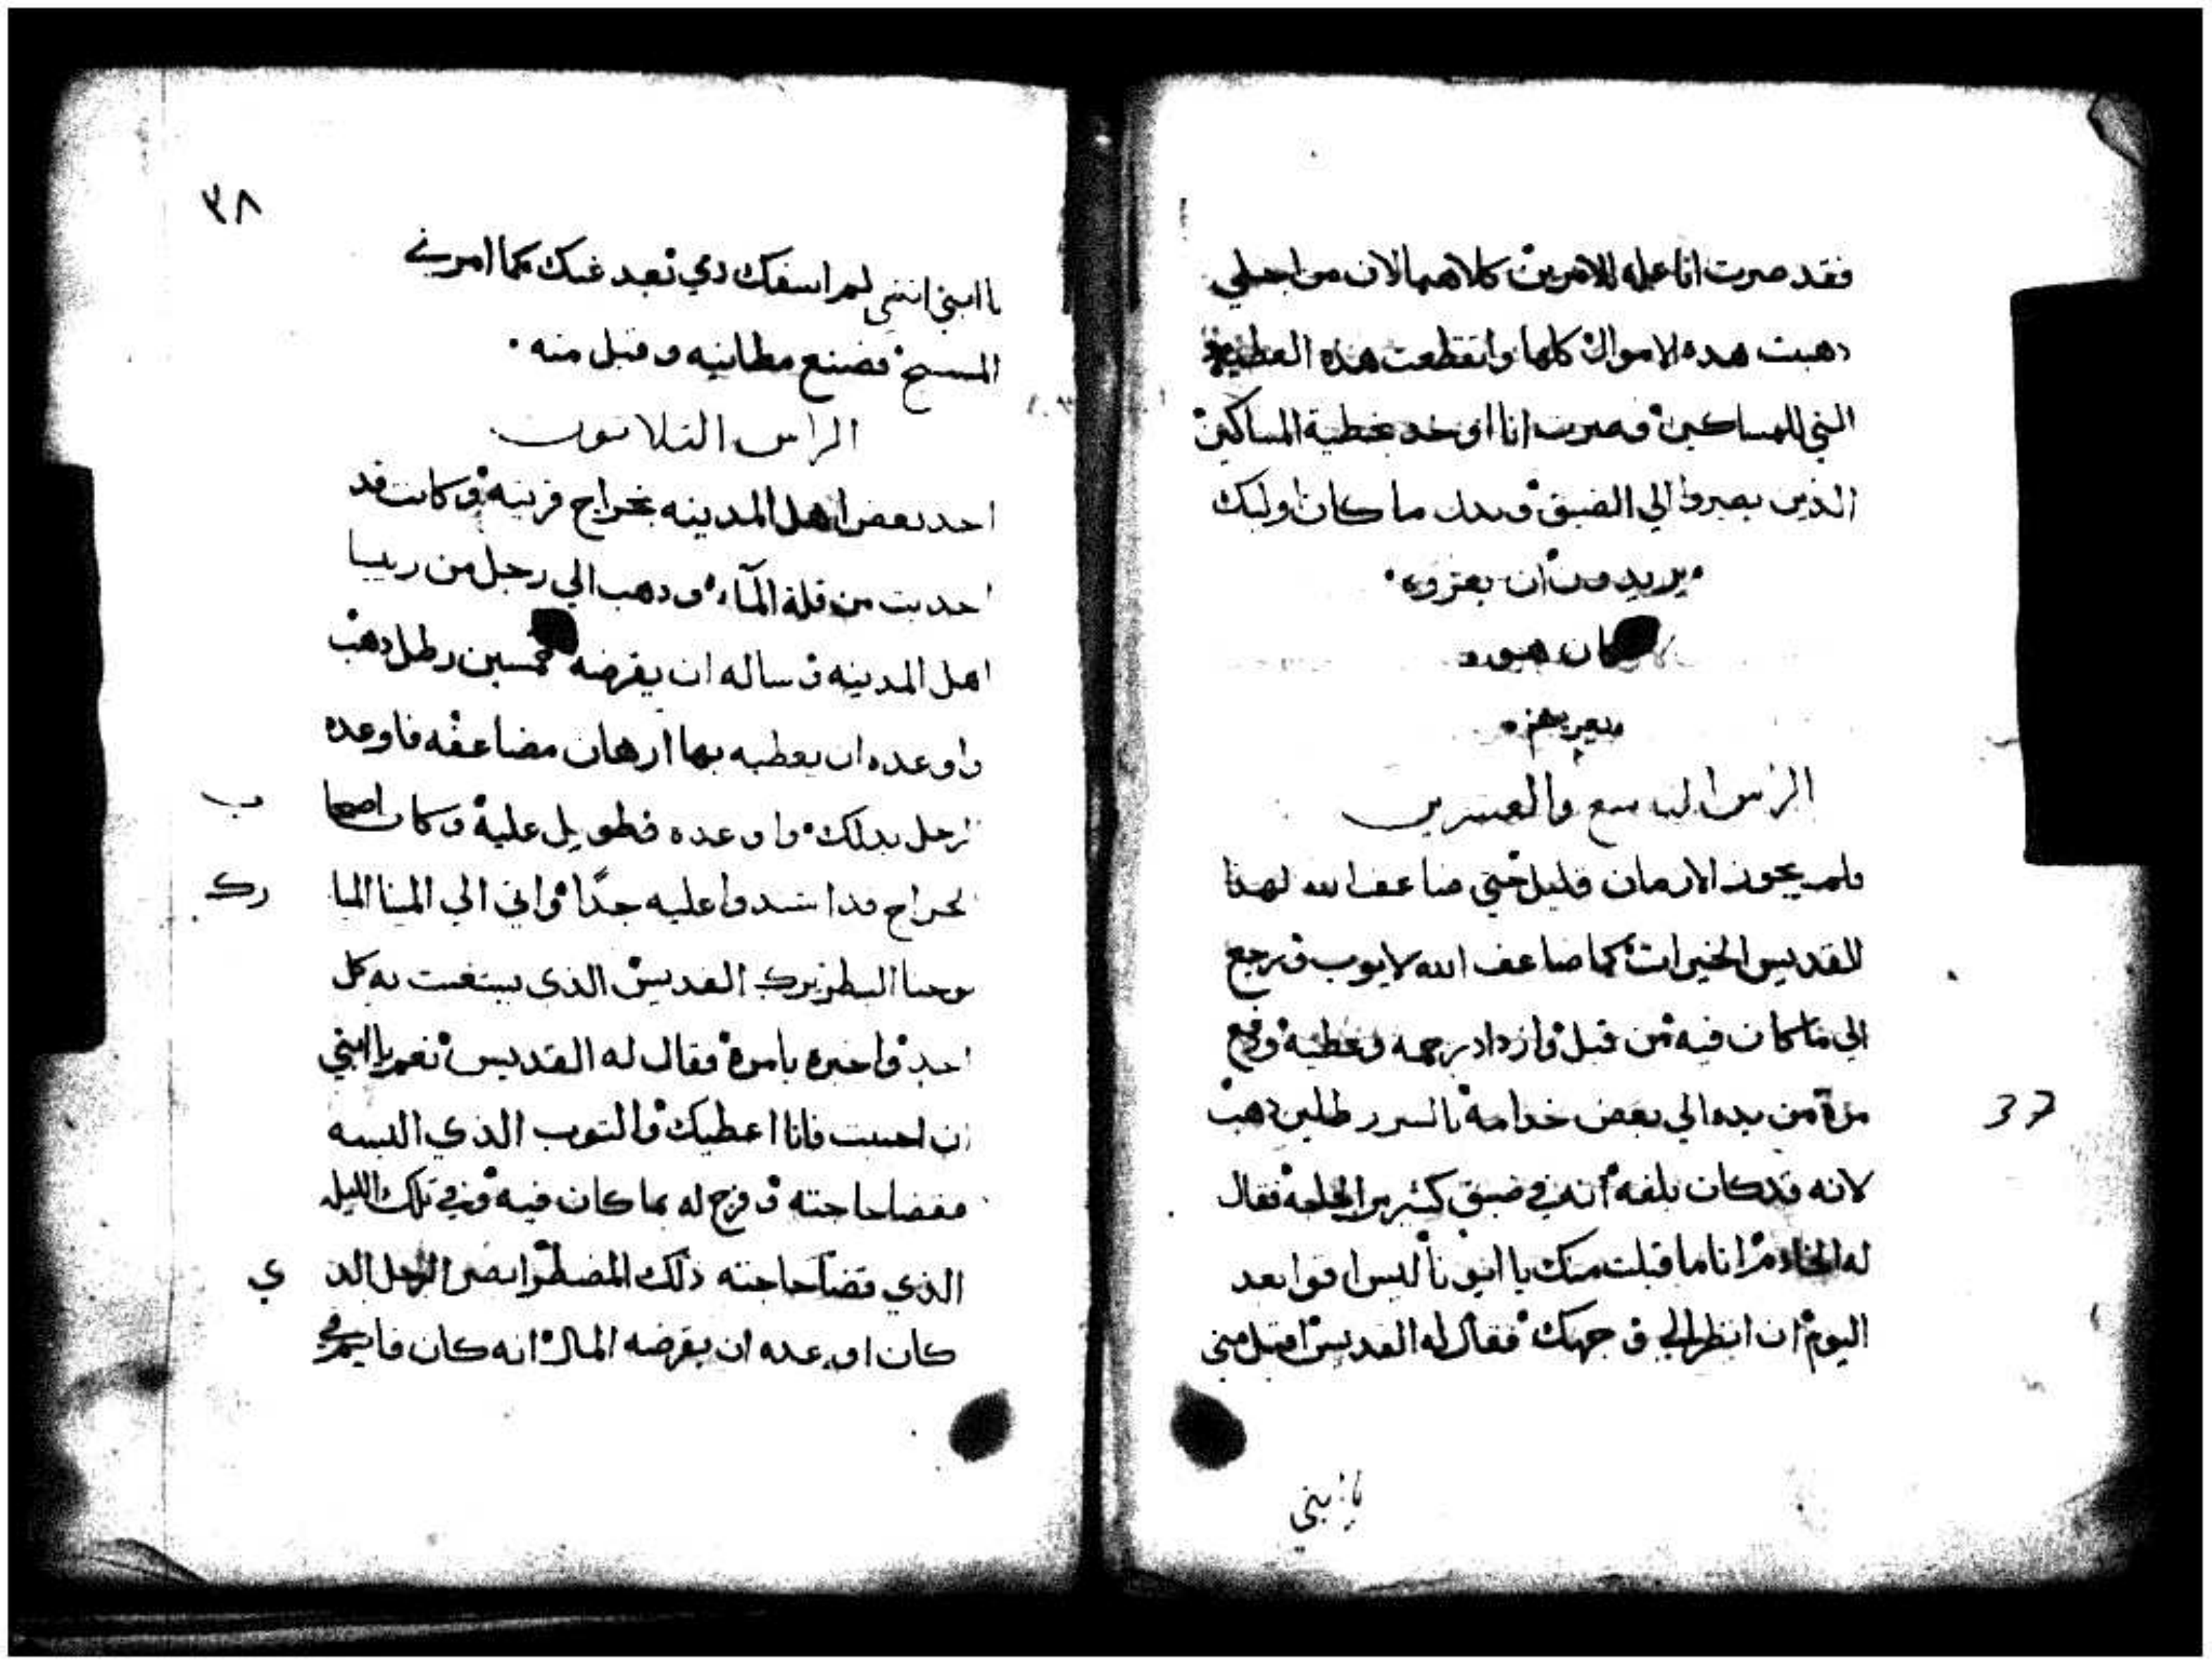 فقد صرت انا عله للامرين كلاهما الان من اجلي
دهبت هده الاموال كلها وانقطعت هذه العطيه
التي للمساكين وصرت انا اوخد بخطية المساكين
الذين يصيروا الي الضيق وبدل ما كان اوليك
يريدون ان يعزوه
كان هو
يعزيهم
الراس التاسع والعشرين
ولم يجوز الازمان قليل حتي ضاعف الله لهذا
القديس الخيرات كما ضاعف الله لايوب ورجع
الي ما كان فيه من قبل وازداد رحمه وعطيه ودفع
مرة من يده الي بعض خدامه بالسر رطلين دهب
لانه قد كان بلغه انه في ضيق كثير من الحاجه فقال
له الخادم انا ما قبلت منك يا ابونا ليس اقوا بعد
اليوم ان انظر الي وجهك فقال له القديس اقبل مني
يا ابني
٣٨
يا ابني انني لم اسفك دمي بعد عنك كما امرني
المسيح فصنع مطانيه وقبل منه
الراس التلاتون
احد بعض اهل المدينه بخراج قريته وكانت قد
اجدبت من قلة المآء ودهب الي رجل من ريسا
اهل المدينه وساله ان يقرضه خمسين رطل دهب
واوعده ان يعطيه بها ارهان مضاعفه فاوعده
الرجل بدلك واوعده فطويل عليه وكان اصحا ب
الخراج قد اشدوا عليه جدًا واتي الي المينا المبا رك
يوحنا البطريرك القديس الذي يستغيت به كل
احد واخبره بامره فقال له القديس نعم يا ابني
ان احببت فانا اعطيك والتوب الذي البسه
فقضا حاجته وفرج له بما كان فيه وفي تلك الليله
الذي قضا حاجته ذلك المضطر ابصر الرجل الد ي
كان اوعده ان يقرضه المال انه كان قايم